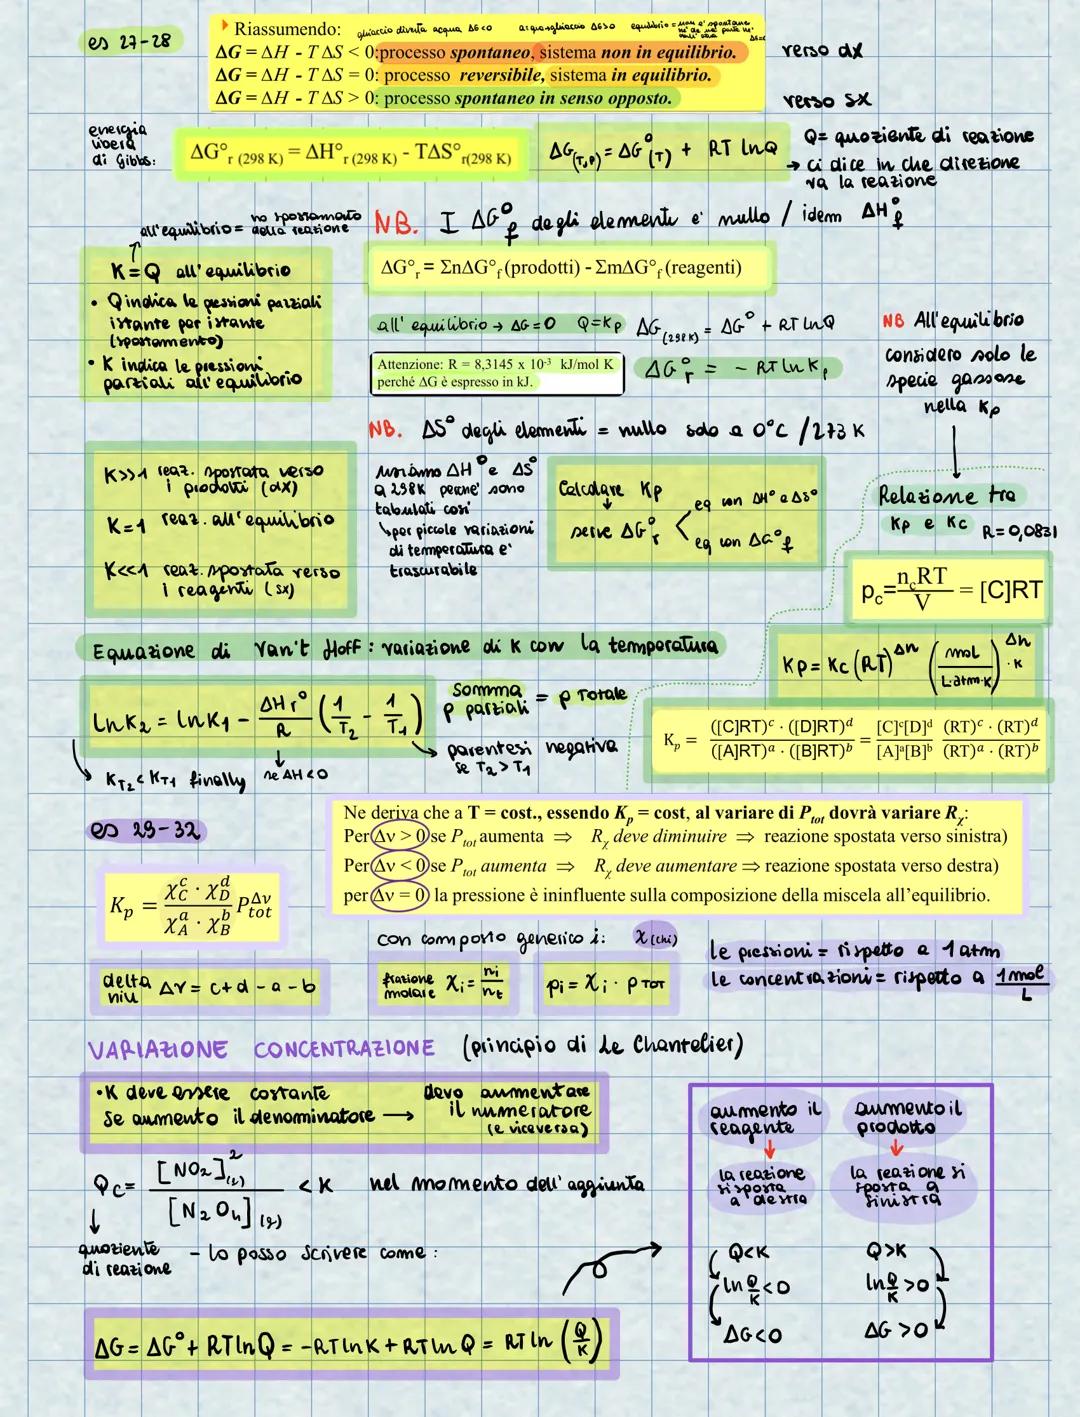 es 27-28
Riassumendo: ghiaccio diventa acqua ΔG<0 acqua→ghiaccio ΔG>0
ΔG = ΔH - TΔS < 0: processo spontaneo, sistema non in equilibrio. verso dx
ΔG = ΔH - TΔS = 0: processo reversibile, sistema in equilibrio.
ΔG = ΔH - TΔS > 0: processo spontaneo in senso opposto. verso sx
energia libera di Gibbs:
ΔG°r (298 K) = ΔH°r (298 K) - TΔS°r(298 K)
ΔG(T,P) = ΔG°(T) + RT lnQ
Q= quoziente di reazione
→ ci dice in che direzione
va la reazione
all'equilibrio = no spostamento della reazione
NB. I ΔG°f degli elementi e' nullo / idem ΔH°f
K=Q all'equilibrio
• Q indica le pressioni parziali
istante per istante
(spostamento)
• K indica le pressioni
parziali all'equilibrio
ΔG°r = ΣnΔG°f (prodotti) - ΣmΔG°f (reagenti)
all'equilibrio → ΔG=0 Q=Kp ΔG(298K) = ΔG° + RT lnQ
Attenzione: R = 8,3145 x 10-3 kJ/mol K
perché ΔG è espresso in kJ.
ΔG°r = - RT ln Kp
NB All'equilibrio
considero solo le
specie gassose
nella Kp
NB. ΔS° degli elementi = nullo solo a 0°C /273 K
K>>1 reaz. spostata verso
i prodotti (dx)
K=1 reaz. all'equilibrio
K<<1 reaz. spostata verso
i reagenti (sx)
usiamo ΔH° e ΔS°
a 298K perche' sono
tabulati cosi'
↳ per piccole variazioni
di temperatura e'
trascurabile
Calcolare Kp
↓
serve ΔG°r
eq con ΔH° e ΔS°
eq con ΔG°f
Relazione tra
Kp e Kc R=0,0831
pc = ncRT/V = [C]RT
Kp= Kc (RT)^Δn (mol/L·atm·K)^Δn ·K
Kp = ([C]RT)^c · ([D]RT)^d / ([A]RT)^a · ([B]RT)^b = [C]^c[D]^d / [A]^a[B]^b (RT)^c · (RT)^d / (RT)^a · (RT)^b
Equazione di Van't Hoff : variazione di K con la temperatura
lnK2 = lnK1 - ΔHr°/R (1/T2 - 1/T1)
Somma p parziali = p Totale
→ parentesi negativa
se T2 > T1
↓ se ΔH<0
KT2 < KT1 finally
es 29-32
Ne deriva che a T = cost., essendo Kp = cost, al variare di Ptot dovrà variare Rχ:
Per Δν > 0 se Ptot aumenta ⇒ Rχ deve diminuire ⇒ reazione spostata verso sinistra)
Per Δν < 0 se Ptot aumenta ⇒ Rχ deve aumentare ⇒ reazione spostata verso destra)
per Δν = 0 la pressione è ininfluente sulla composizione della miscela all'equilibrio.
Kp = χC^c · χD^d / χA^a · χB^b Ptot^Δν
delta niu Δν = c+d-a-b
con composto generico i: χ (chi)
frazione molare χi = ni/nt
pi = χi · p TOT
le pressioni = rispetto a 1 atm
le concentrazioni = rispetto a 1 mol/L
VARIAZIONE CONCENTRAZIONE (principio di Le Chantelier)
•K deve essere costante
Se aumento il denominatore → devo aumentare
il numeratore
(e viceversa)
Qc= [NO2]²(g) / [N2O4](g) < K nel momento dell'aggiunta
↓
quoziente
di reazione
- lo posso scrivere come :
ΔG = ΔG° + RTlnQ = -RTlnK + RTlnQ = RT ln (Q/K)
aumento il
reagente
↓
la reazione
si sposta
a destra
Q<K
ln Q/K <0
ΔG<0
aumento il
prodotto
↓
la reazione si
sposta a
sinistra
Q>K
ln Q/K >0
ΔG >0